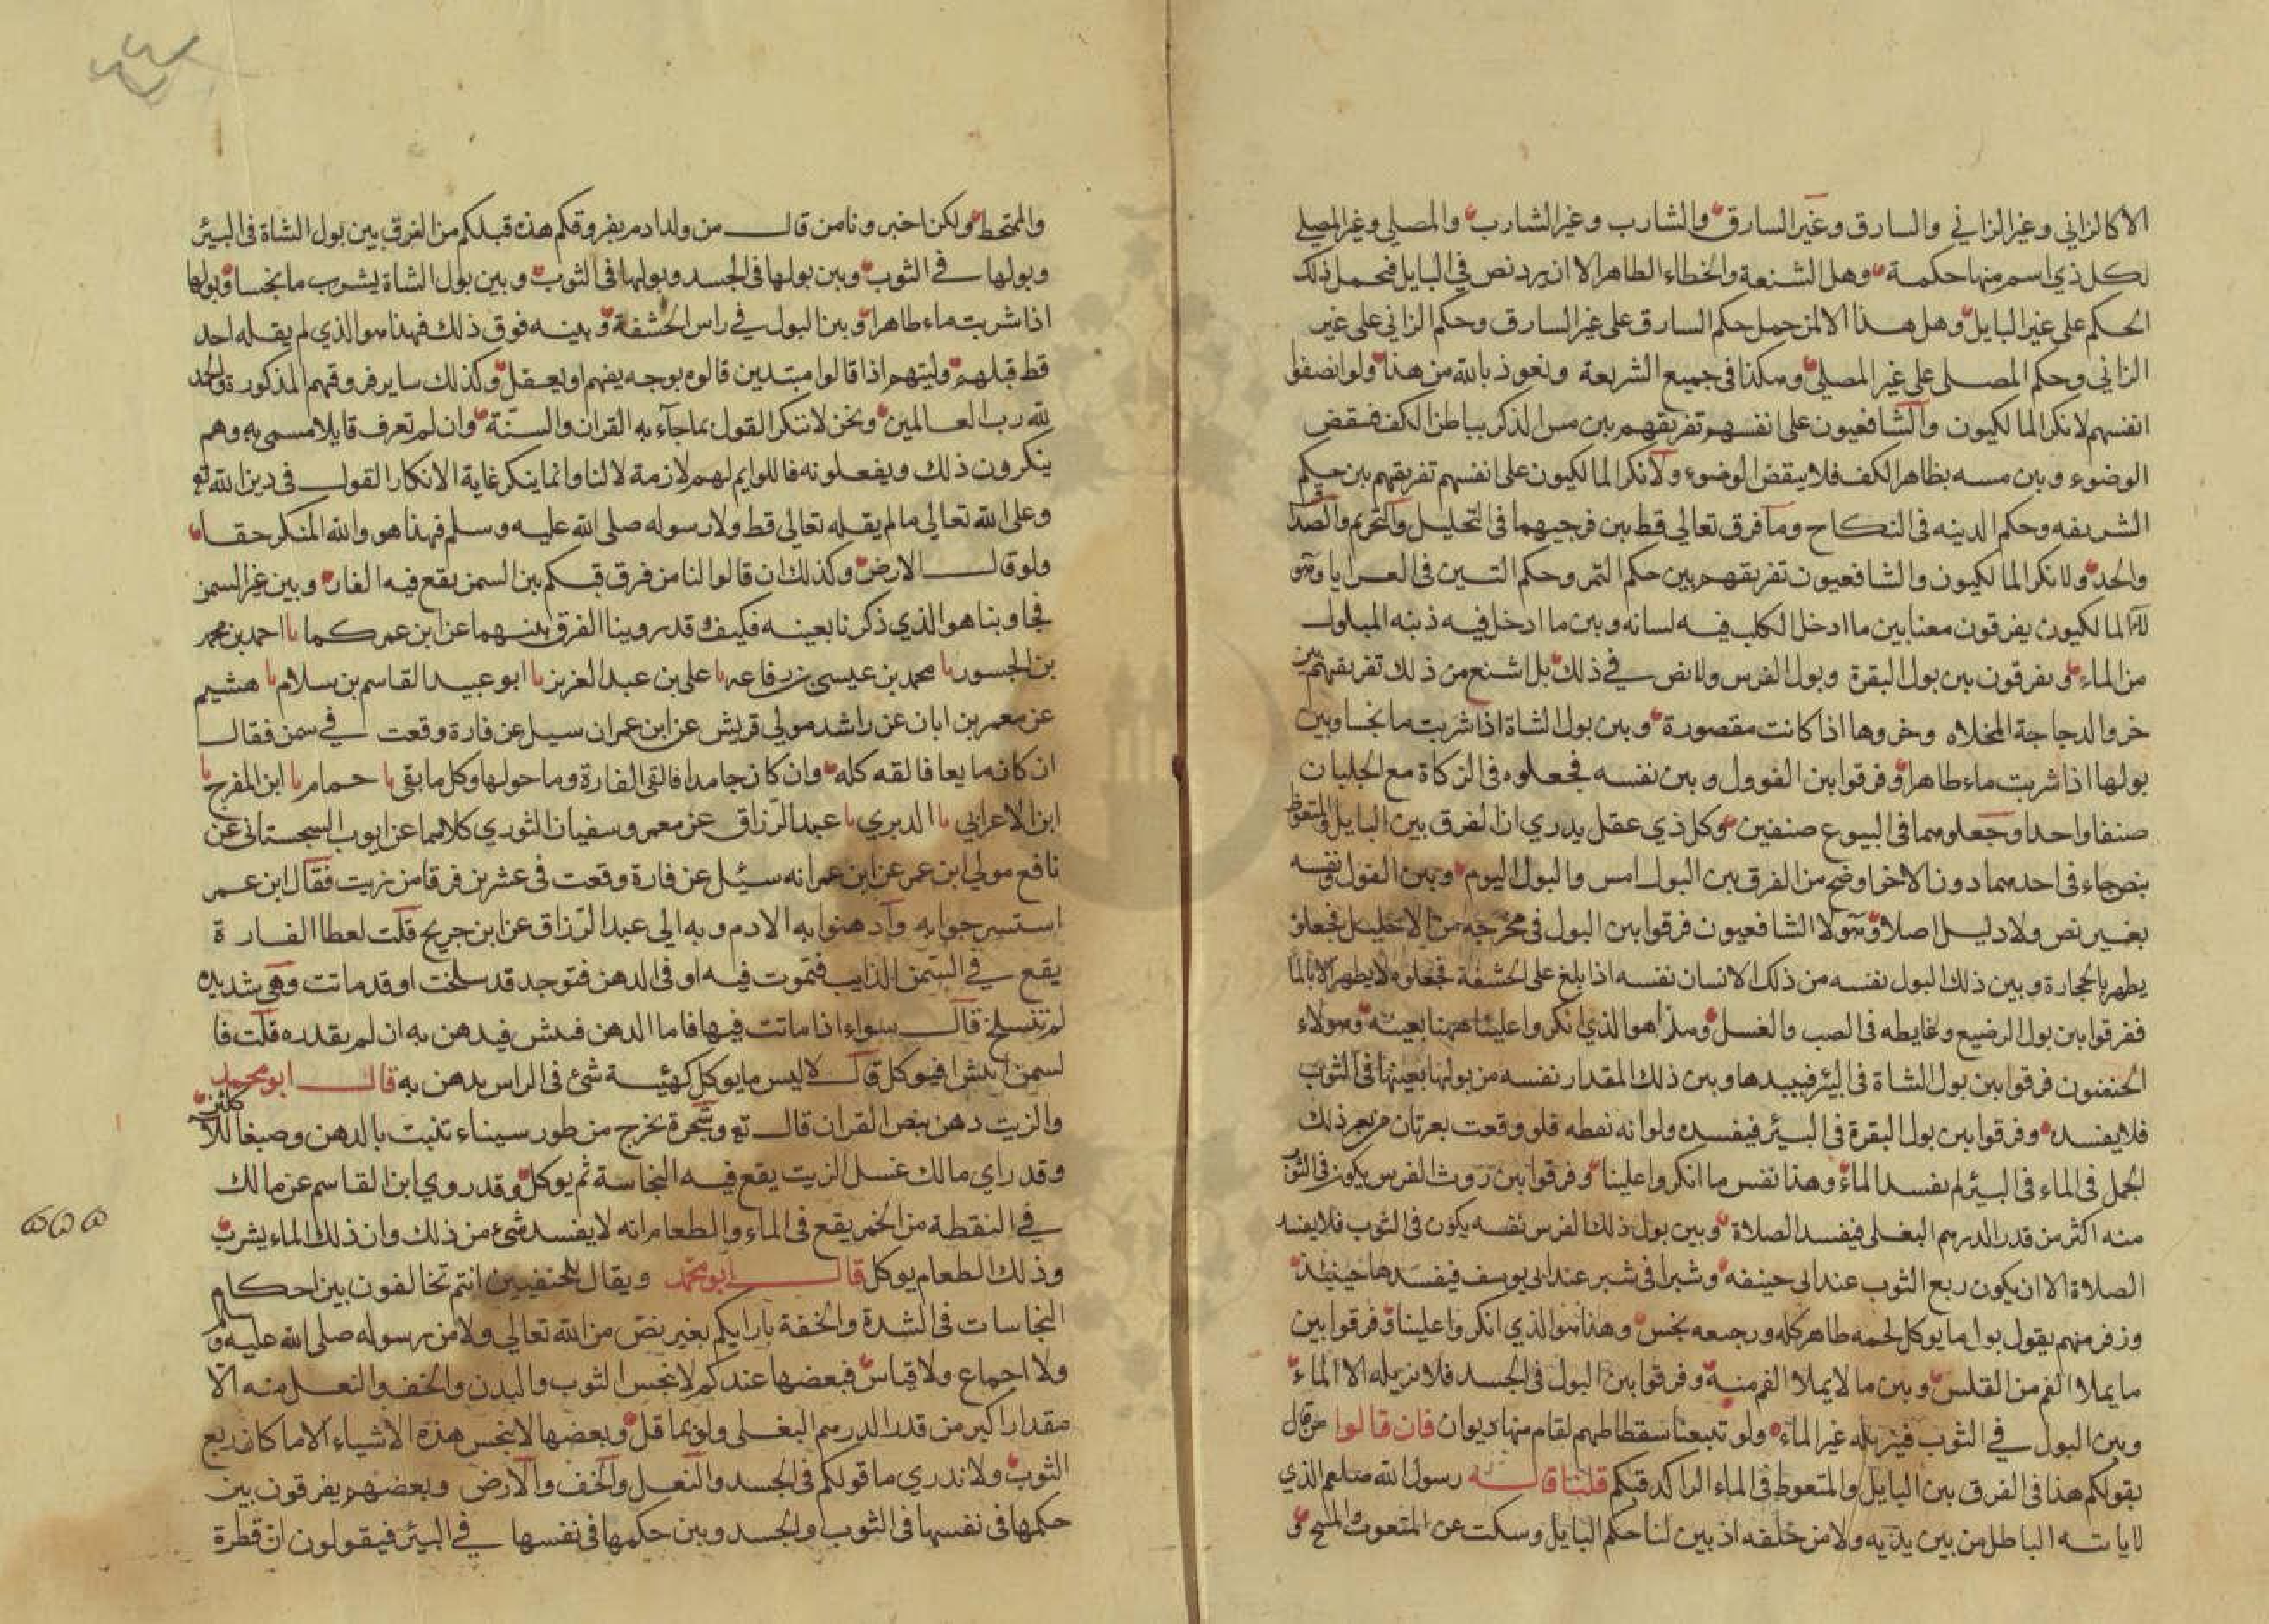 الا كالزاني وغير الزاني والسارق وغير السارق والشارب وغير الشارب والمصلي وغير المصلي
لكل ذي اسم منها حكمه وهل الشنعة والخطاء الظاهر الا ان يرد نص في البايل فيحمل ذلك
الحكم على غير البايل وهل هذا الا لمن حمل حكم السارق على غير السارق وحكم الزاني على غير
الزاني وحكم المصلى على غير المصلي وهكذا في جميع الشريعة ونعوذ بالله من هذا ولو انصفوا
انفسهم لانكر المالكيون والشافعيون على انفسهم تفريقهم بين مس الذكر بباطن الكف فينقض
الوضوء وبين مسه بظاهر الكف فلا ينقض الوضوء ولانكر المالكيون على انفسهم تفريقهم بين حكم
الشريفه وحكم الدينه في النكاح وما فرق تعالى قط بين فرجيهما في التحليل والتحريم والصداق
والحد ولا نكر المالكيون والشافعيون تفريقهم بين حكم التمر وحكم التين في العرايا وهو
لاء المالكيون يفرقون معنا بين ما ادخل الكلب فيه لسانه وبين ما ادخل فيه ذنبه المبلول
من الماء ويفرقون بين بول البقرة وبول الفرس ولا نص في ذلك بل اشنع من ذلك تفريقهم بين
خرو الدجاجة المخلاه وخروها اذا كانت مقصورة وبين بول الشاة اذا شربت ما نجسا وبين
بولها اذا شربت ماء طاهرا وفرقوا بين الفوول وبين نفسه فجعلوه في الزكاة مع الجلبان
صنفا واحدا وجعلوهما في البيوع صنفين وكل ذي عقل يدري ان الفرق بين البايل والمتغوط
بنص جاء في احدهما دون الاخر اوضح من الفرق بين البول امس والبول اليوم وبين الفول ونفسه
بغير نص ولا دليل اصلا وهولا الشافعيون فرقوا بين البول في مخرجه من الاحليل فجعلوه
يطهر بالحجارة وبين ذلك البول نفسه من ذلك الانسان نفسه اذا بلغ على الحشفة فجعلوه لا يطهر الا بالما
ففرقوا بين بول الرضيع وغايطه في الصب والغسل وهذا هو الذي انكروا علينا ههنا بعينه وهولاء
الحنفيون فرقوا بين بول الشاة في البئر فيبيدها وبين ذلك المقدار نفسه من بولها بعينها في الثوب
فلا يفسده وفرقوا بين بول البقرة في البيئر فيفسده ولو انه نقطه فلو وقعت بعرتان من بعر ذلك
الجمل في الماء في البيئر لم يفسد الماء وهذا نفس ما انكروا علينا وفرقوا بين روث الفرس يكون في الثوب
منه اكثر من قدر الدرهم البغلى فيفسد الصلاة وبين بول ذلك الفرس نفسه يكون في الثوب فلا يفسد
الصلاة الا ان يكون ربع الثوب عند ابي حنيفه وشبرا في شبر عند ابي يوسف فيفسدها حينئذ
وزفر منهم يقول بول ما يوكل لحمه طاهر كله ورجيعه نجس وهذا هو الذي انكروا علينا وفرقوا بين
ما يملا الفم من القلس وبين ما لا يملا الفم منه وفرقوا بين البول في الجسد فلا يزيله الا الماء
وبين البول في الثوب فيزيله غير الماء ولو تتبعنا سقطاطهم لقام منها ديوان فان قالوا من قال
بقولكم هذا في الفرق بين البايل والمتغوط في الماء الراكد قبلكم قلنا قاله رسول الله صلعم الذي
لا ياته الباطل من بين يديه ولا من خلفه اذ بين لنا حكم البايل وسكت عن المتغوط والمتمخط و
والمتمخط ولكن اخبرونا من قال من ولد ادم بفروقكم هذه قبلكم من الفرق بين بول الشاة في البيئر
وبولها في الثوب وبين بولها في الجسد وبولها في الثوب وبين بول الشاة يشرب ما نجسا وبولها
اذا شربت ماء طاهرا وبين البول في راس الحشفة وبينه فوق ذلك فهذا هو الذي لم يقله احد
قط قبلهم وليتهم اذا قالوا مبتدين قالوه بوجه يفهم او يعقل وكذلك ساير فروقهم المذكورة والحمد
لله رب العالمين ونحن لا ننكر القول بما جآء به القران والسنة وان لم تعرف قايلا مسمى به وهم
ينكرون ذلك ويفعلونه فاللوايم لهم لازمة لا لنا وانما ينكر غاية الانكار القول في دين الله تع
وعلى الله تعالى ما لم يقله تعالى قط ولا رسوله صلى الله عليه وسلم فهذا هو والله المنكر حقا
ولو قال الارض وكذلك ان قالوا لنا من فرق قبلكم بين السمن يقع فيه الفار وبين غير السمن
فجاوبنا هو الذي ذكرنا بعينه فكيف وقد روينا الفرق بينهما عن ابن عمر كما نا احمد بن محمد
بن الجسور نا محمد بن عيسى بن رفاعه نا علي بن عبد العزيز نا ابو عبيد القاسم بن سلام نا هشيم
عن معمر بن ابان عن راشد مولى قريش عن ابن عمر ان سيل عن فارة وقعت في سمن فقال
ان كانه مايعا فالقه كله وان كان جامدا فالقى الفارة وما حولها وكل ما بقى نا حمام نا ابن المفرج نا
ابن الاعرابي نا الدبري نا عبد الرزاق عن معمر وسفيان الثوري كلاهما عن ايوب السجستاني عن
نافع مولى ابن عمر عن ابن عمر انه سئل عن فارة وقعت في عشرين فرقا من زيت فقال ابن عمر
استسرجوا به وادهنوا به الادم وبه الى عبد الرزاق عن ابن جريج قلت لعطا الفارة
يقع في السمن الذايب فتموت فيه او في الدهن فتوجد قد سلخت او قد ماتت وهي شديده
لم تنسلخ قال سواء اذا ماتت فيها فاما الدهن فينش فيدهن به ان لم يقدره قلت فا
لسمن اينش افيوكل قال لا ليس ما يوكل كهئية شئ في الراس يدهن به قال ابو محمد
والزيت دهن بنص القران قال تع وشجرة يخرج من طور سيناء تنبت بالدهن وصبغا للاكلين
وقد راي مالك غسل الزيت يقع فيه النجاسة ثم يوكل وقد روي ابن القاسم عن مالك
في النقطة من الخمر يقع في الماء والطعام انه لا يفسد شئ من ذلك وان ذلك الماء يشرب
وذلك الطعام يوكل قال ابو محمد ويقال للحنفيين انتم تخالفون بين احكام
النجاسات في الشدة والخفة بارايكم بغير نص من الله تعالى ولا من رسوله صلى الله عليه وسلم
ولا اجماع ولا قياس فبعضها عندكم لا ينجس الثوب والبدن والخف والنعل منه الا
مقدار اكبر من قدر الدرهم البغلى ولو بما قل وبعضها لا ينجس هذه الاشياء الا ما كان ربع
الثوب ولا ندري ما قولكم في الجسد والنعل والخف والارض وبعضهم يفرقون بين
حكمها في نفسها في الثوب والجسد وبين حكمها في نفسها في البئر فيقولون ان قطرة